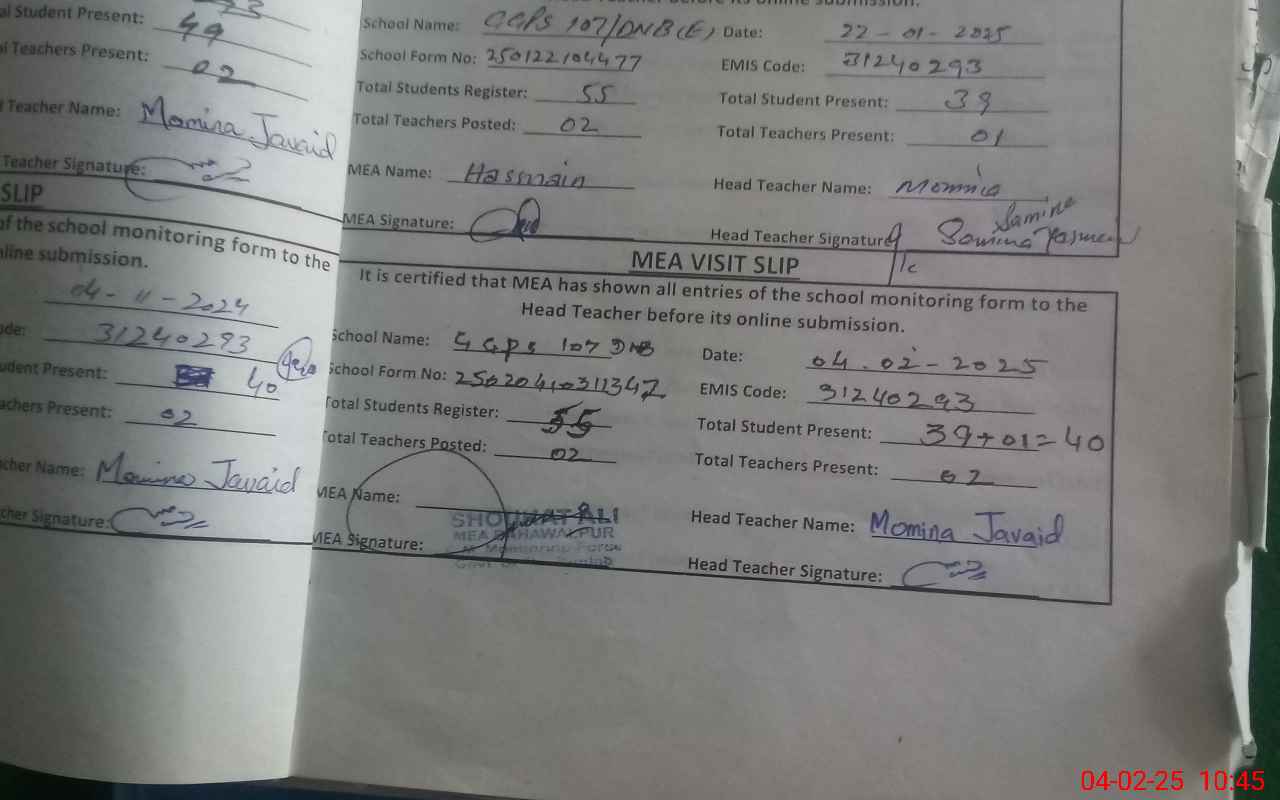 al Student Present: 49
al Teachers Present: 02
Teacher Name: Momina Javaid
Teacher Signature:
SLIP
of the school monitoring form to the
nline submission.
04-11-2024
ode: 31240293
udent Present: 40
achers Present: 02
cher Name: Momina Javaid
cher Signature:
School Name: GGPS 107/DNB(E) Date: 22-01-2025
School Form No: 250122104477 EMIS Code: 31240293
Total Students Register: 55 Total Student Present: 39
Total Teachers Posted: 02 Total Teachers Present: 01
MEA Name: Hasnain Head Teacher Name: Momnia
MEA Signature: Head Teacher Signature Samina Yasmeen
Samina
MEA VISIT SLIP
It is certified that MEA has shown all entries of the school monitoring form to the
Head Teacher before its online submission.
School Name: GGPS 107 DNB Date: 04.02-2025
School Form No: 2502041031134 EMIS Code: 31240293
Total Students Register: 55 Total Student Present: 39+01=40
Total Teachers Posted: 02 Total Teachers Present: 02
MEA Name: Head Teacher Name: Momina Javaid
MEA Signature: Head Teacher Signature:
SHOUKAT ALI
MEA BAHAWALPUR
Monitoring Force
04-02-25 10:45